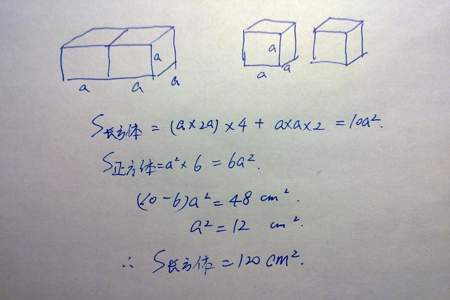 a a a a
a a a
S长方体 = (a×2a)×4 + a×a×2 = 10a².
S正方体=a²×6 = 6a².
(10-6)a² = 48 cm².
a² = 12 cm².
∴ S长方体 = 120cm².